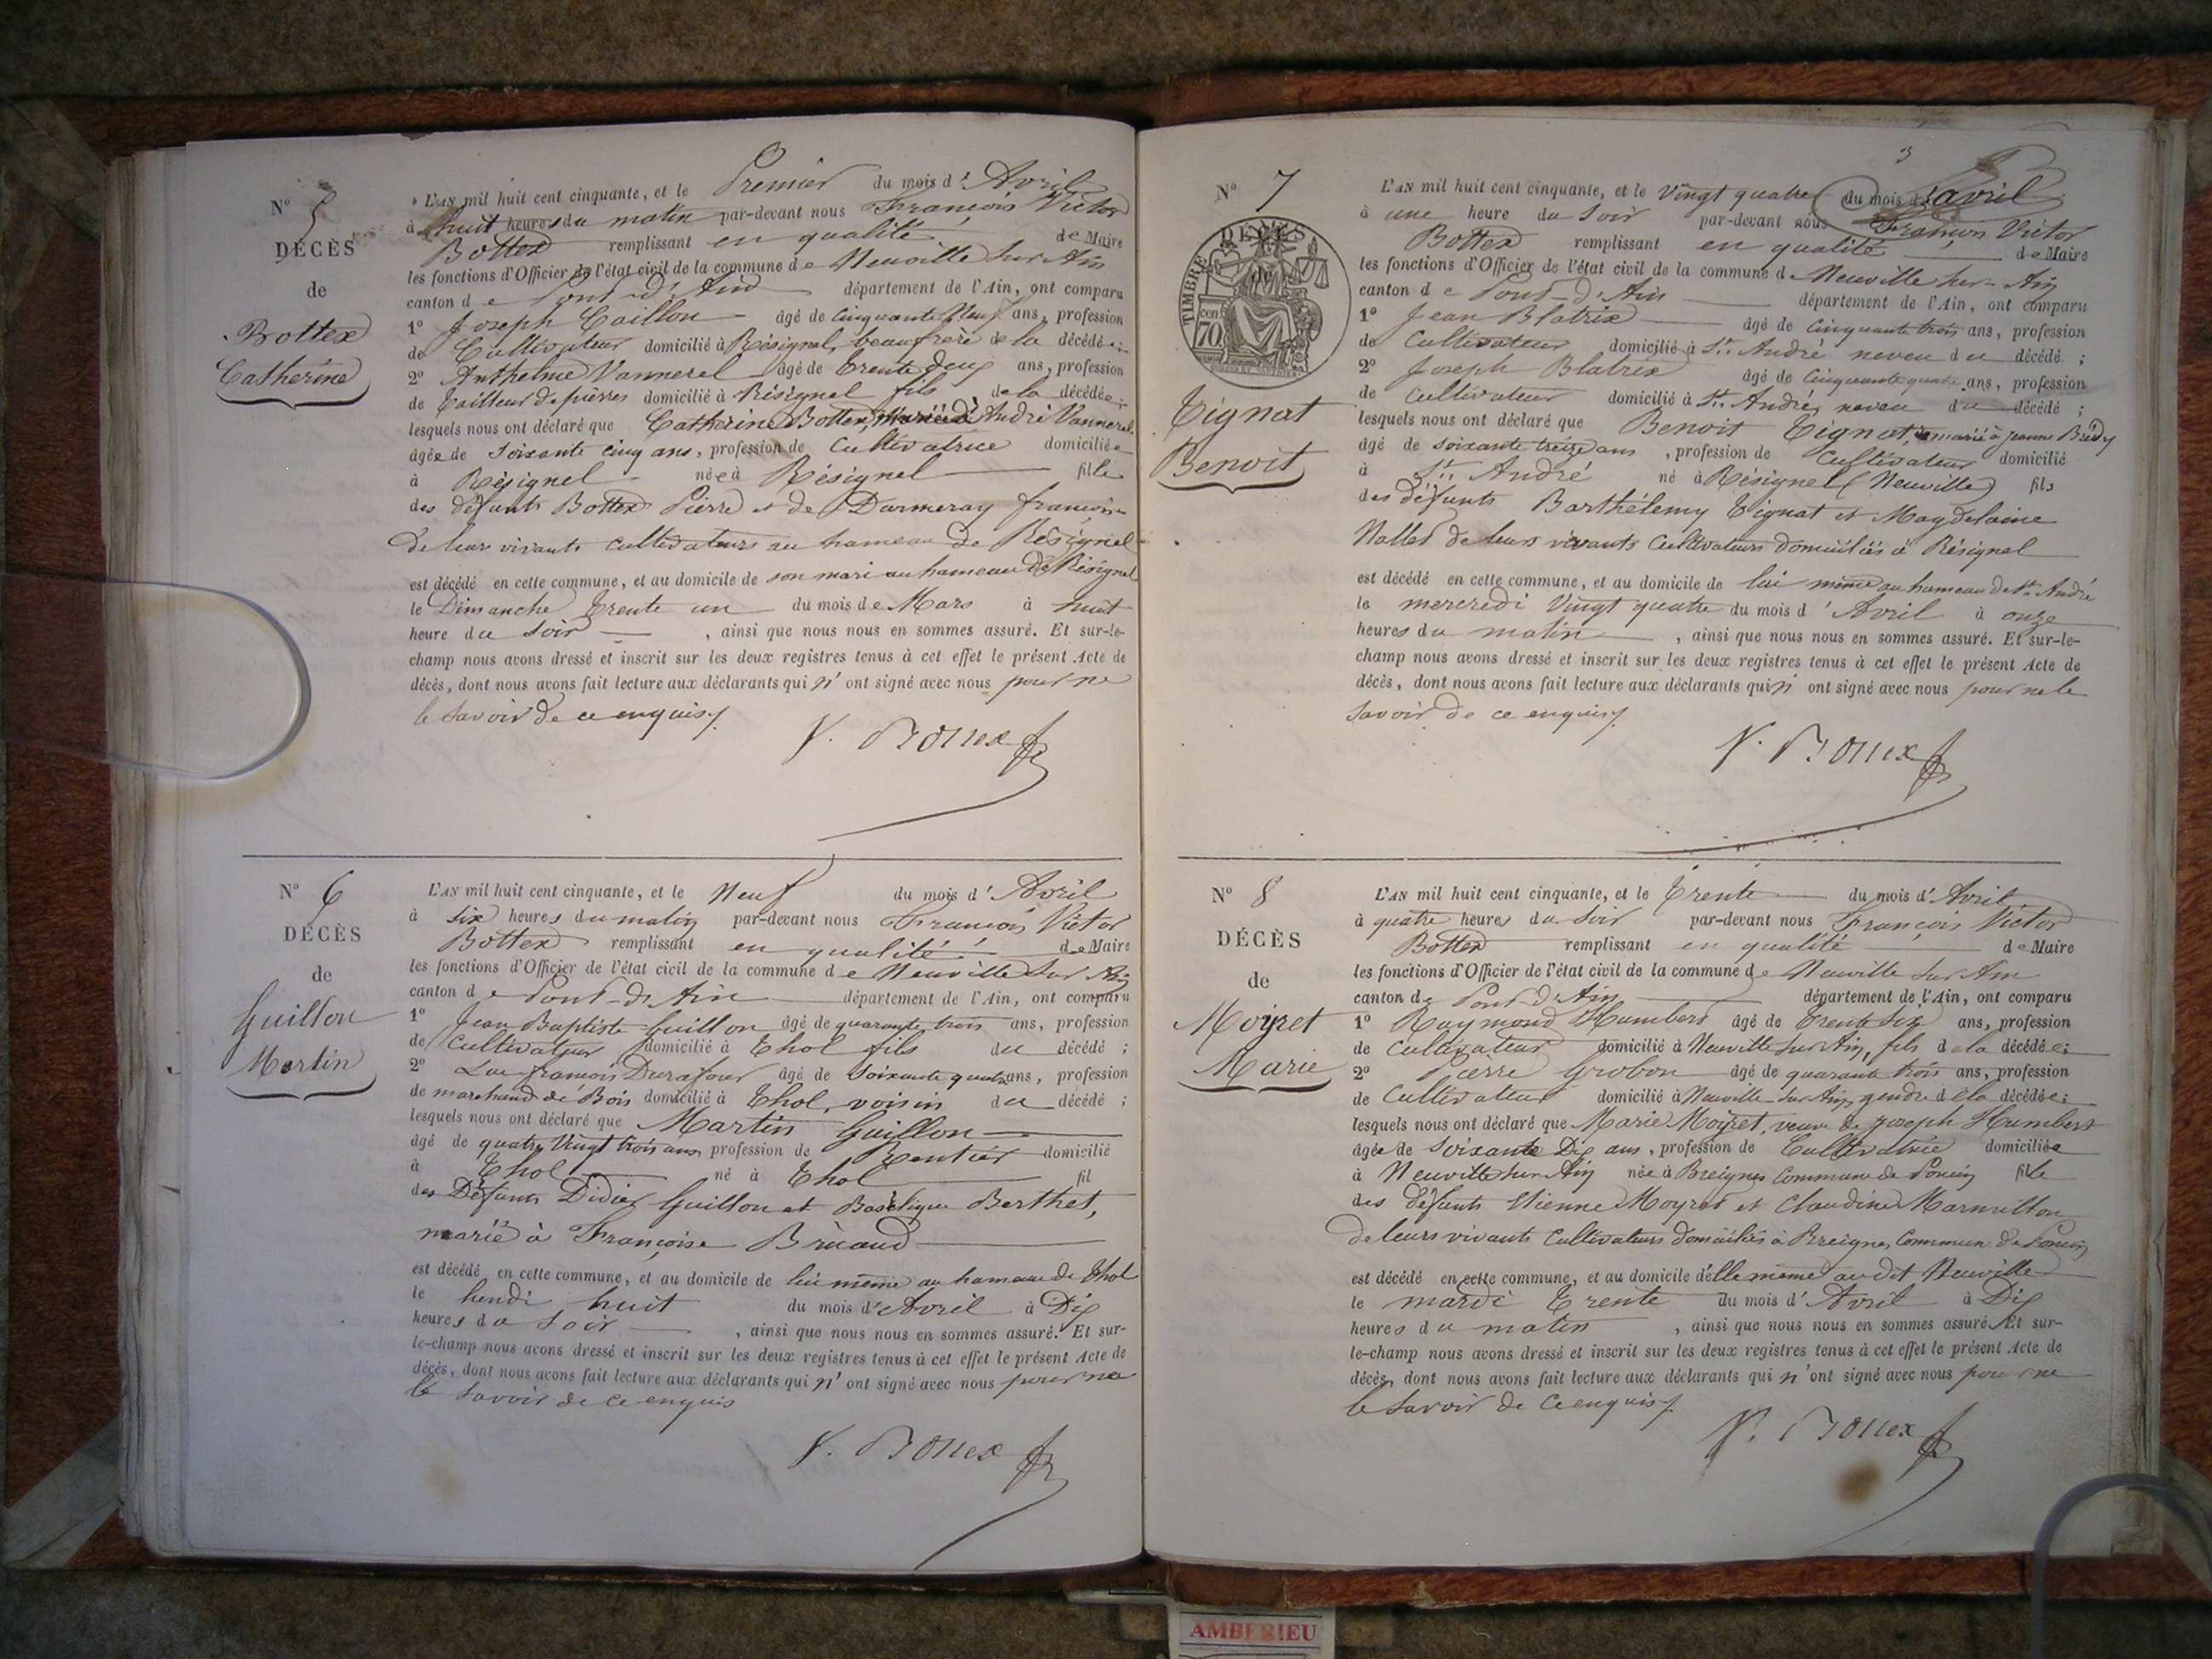 N° 5
DÉCÈS
de
Bottex
Catherine
L'AN mil huit cent cinquante, et le Premier du mois d'Avril
à huit heures du matin par-devant nous François Victor
Bottex remplissant en qualité de Maire
les fonctions d'Officier de l'état civil de la commune de Neuville sur Ain
canton de Pont-d'Ain département de l'Ain, ont comparu
1° Joseph Caillon âgé de cinquante neuf ans, profession
de Cultivateur domicilié à Résignel, beaufrère de la décédée;
2° Anthelme Vannerel âgé de trente deux ans, profession
de tailleur de pierres domicilié à Résignel fils de la décédée;
lesquels nous ont déclaré que Catherine Bottex, mariée à André Vannerel
âgée de soixante cinq ans, profession de Cultivatrice domiciliée
à Résignel née à Résignel fille
des défunts Bottex Pierre et de Darmeray françoise
de leur vivants cultivateurs au hameau de Résignel
est décédé en cette commune, et au domicile de son mari au hameau de Résignel
le Dimanche trente un du mois de Mars à huit
heure du soir , ainsi que nous nous en sommes assuré. Et sur-le-
champ nous avons dressé et inscrit sur les deux registres tenus à cet effet le présent Acte de
décès, dont nous avons fait lecture aux déclarants qui n'ont signé avec nous pour ne
le savoir de ce enquis.
V. Bottex
N° 6
DÉCÈS
de
Guillon
Martin
L'AN mil huit cent cinquante, et le Neuf du mois d'Avril
à six heures du matin par-devant nous François Victor
Bottex remplissant en qualité de Maire
les fonctions d'Officier de l'état civil de la commune de Neuville sur Ain
canton de Pont-d'Ain département de l'Ain, ont comparu
1° Jean Baptiste Guillon âgé de quarante trois ans, profession
de Cultivateur domicilié à Thol fils du décédé;
2° Luc françois Durafour âgé de soixante quatre ans, profession
de marchand de Bois domicilié à Thol, voisin du décédé;
lesquels nous ont déclaré que Martin Guillon
âgé de quatre vingt trois ans profession de rentier domicilié
à Thol né à Thol fil
des Défunts Didier Guillon et Berthet,
marié à Françoise Bruaud
est décédé en cette commune, et au domicile de lui même au hameau de Thol
le lundi huit du mois d'Avril à Dix
heures du soir , ainsi que nous nous en sommes assuré. Et sur-
le-champ nous avons dressé et inscrit sur les deux registres tenus à cet effet le présent Acte de
décès, dont nous avons fait lecture aux déclarants qui n'ont signé avec nous pour ne
le savoir de ce enquis
V. Bottex
3
N° 7
DÉCÈS
de
TIMBRE
70 cen
Tignat
Benoit
L'AN mil huit cent cinquante, et le vingt quatre du mois d'avril
à une heure du soir par-devant nous François Victor
Bottex remplissant en qualité de Maire
les fonctions d'Officier de l'état civil de la commune de Neuville sur Ain
canton de Pont-d'Ain département de l'Ain, ont comparu
1° Jean Blatrix âgé de cinquante trois ans, profession
de Cultivateur domicilié à St. André neveu du décédé;
2° Joseph Blatrix âgé de cinquante quatre ans, profession
de Cultivateur domicilié à St. André, neveu du décédé;
lesquels nous ont déclaré que Benoit Tignat, marié à jeanne Brédy
âgé de soixante treize ans, profession de Cultivateur domicilié
à St. André né à Résignel (Neuville) fils
des défunts Barthélemy Tignat et Magdelaine
Nallet de leurs vivants Cultivateurs domiciliés à Résignel
est décédé en cette commune, et au domicile de lui même au hameau de St. André
le mercredi vingt quatre du mois d'Avril à onze
heures du matin , ainsi que nous nous en sommes assuré. Et sur-le-
champ nous avons dressé et inscrit sur les deux registres tenus à cet effet le présent Acte de
décès, dont nous avons fait lecture aux déclarants qui n'ont signé avec nous pour ne le
savoir de ce enquis.
V. Bottex
N° 8
DÉCÈS
de
Moyret
Marie
L'AN mil huit cent cinquante, et le trente du mois d'Avril
à quatre heures du soir par-devant nous François Victor
Bottex remplissant en qualité de Maire
les fonctions d'Officier de l'état civil de la commune de Neuville sur Ain
canton de Pont-d'Ain département de l'Ain, ont comparu
1° Raymond Humbert âgé de trente six ans, profession
de Cultivateur domicilié à Neuville sur Ain, fils de la décédée;
2° Pierre Grobon âgé de quarante trois ans, profession
de Cultivateur domicilié à Neuville sur Ain, gendre de la décédée;
lesquels nous ont déclaré que Marie Moyret, veuve de Joseph Humbert
âgée de soixante Dix ans, profession de Cultivatrice domiciliée
à Neuville sur Ain née à Breignes Commune de Poncin fille
des défunts Etienne Moyret et Claudine Marmillon
de leurs vivants Cultivateurs domiciliés à Breignes, Commune de Poncin
est décédé en cette commune, et au domicile d'elle même au dit Neuville
le mardi trente du mois d'Avril à Dix
heures du matin , ainsi que nous nous en sommes assuré. Et sur-
le-champ nous avons dressé et inscrit sur les deux registres tenus à cet effet le présent Acte de
décès, dont nous avons fait lecture aux déclarants qui n'ont signé avec nous pour ne
le savoir de ce enquis.
V. Bottex
AMBERIEU